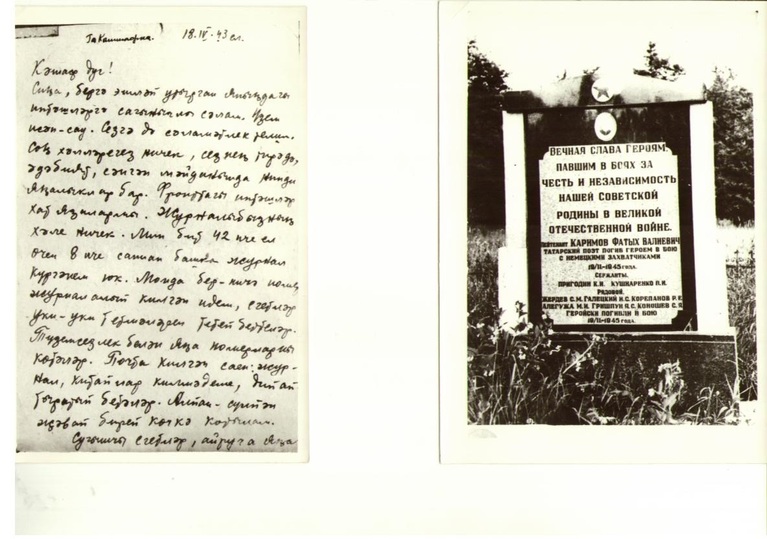 18.IV.43 ел.
Кәшаф дус!
Сиңа, бергә эшләп утырган
сагынычлы сәлам. Үзем
исән-сау. Сезгә дә сәламәтлек телим.
Соң хәлләрегез ничек, сезнең тирәдә,
әдәбият, сәнгат мәйданында нинди
яңалыклар бар. Фронттагы иптәшләр
хат язалармы. Журналыбызның
хәле ничек. Мин биш 42 нче ел
өчен 8 нче саннан башка журнал
күргәнем юк. Монда бер-ничә
журнал алып килгән идем, егетләр
укый-укый
Түземсезлек белән яңа номерларны
көтәләр. Почта килгән саен: жур-
нал, китаплар килмәдеме, дип
бетәләр.
җавап биреп
Сугышчы егетләр, яңа
ВЕЧНАЯ СЛАВА ГЕРОЯМ,
ПАВШИМ В БОЯХ ЗА
ЧЕСТЬ И НЕЗАВИСИМОСТЬ
НАШЕЙ СОВЕТСКОЙ
РОДИНЫ В ВЕЛИКОЙ
ОТЕЧЕСТВЕННОЙ ВОЙНЕ.
ЛЕЙТЕНАНТ КАРИМОВ ФАТЫХ ВАЛИЕВИЧ
ТАТАРСКИЙ ПОЭТ ПОГИБ ГЕРОЕМ В БОЮ
С НЕМЕЦКИМИ ЗАХВАТЧИКАМИ
19/II-1945 ГОДА.
СЕРЖАНТЫ.
ПРИГОДИН К.И. КУШНАРЕНКО П.И.
РЯДОВОЙ.
ЖАРДЕВ С.М. ГАЛЕЦКИЙ И.С. КОРЕПАНОВ Р.Е.
АЛЕГУЖА М.И. ГРИШПУН Я.С. КОНОШЕВ С.Я.
ГЕРОЙСКИ ПОГИБЛИ В БОЮ
19/II-1945 ГОДА.